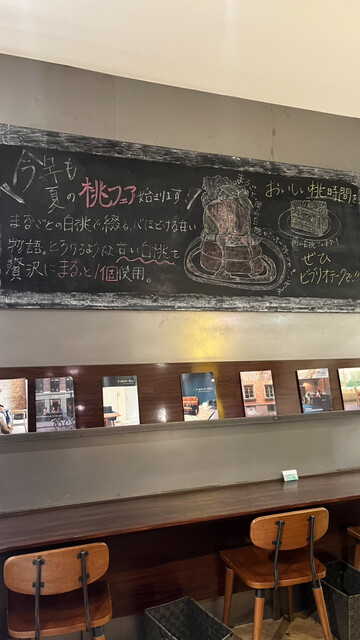 今年も
夏の桃フェア始まります
まるごとの白桃で綴る、心ほどける甘い
物語。とろけるような甘い白桃を
贅沢にまるっと1個使用。
おいしい桃時間を
ぜひ
ビブリオテークで!!